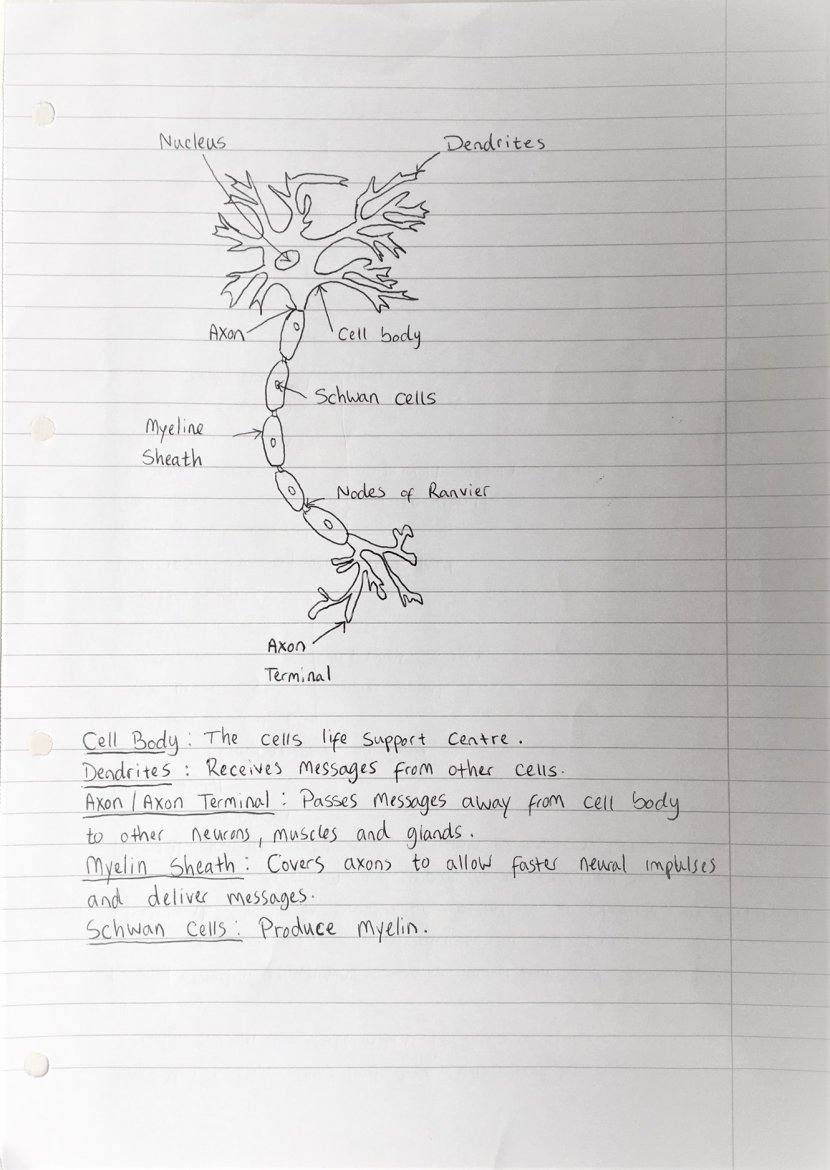 Nucleus
Dendrites
Axon
Cell body
Schwan cells
Myeline
Sheath
Nodes of Ranvier
Axon
Terminal
Cell Body : The cells life support centre.
Dendrites : Receives messages from other cells.
Axon / Axon Terminal : Passes messages away from cell body
to other neurons, muscles and glands.
Myelin Sheath : Covers axons to allow faster neural impulses
and deliver messages.
Schwan Cells : Produce Myelin.